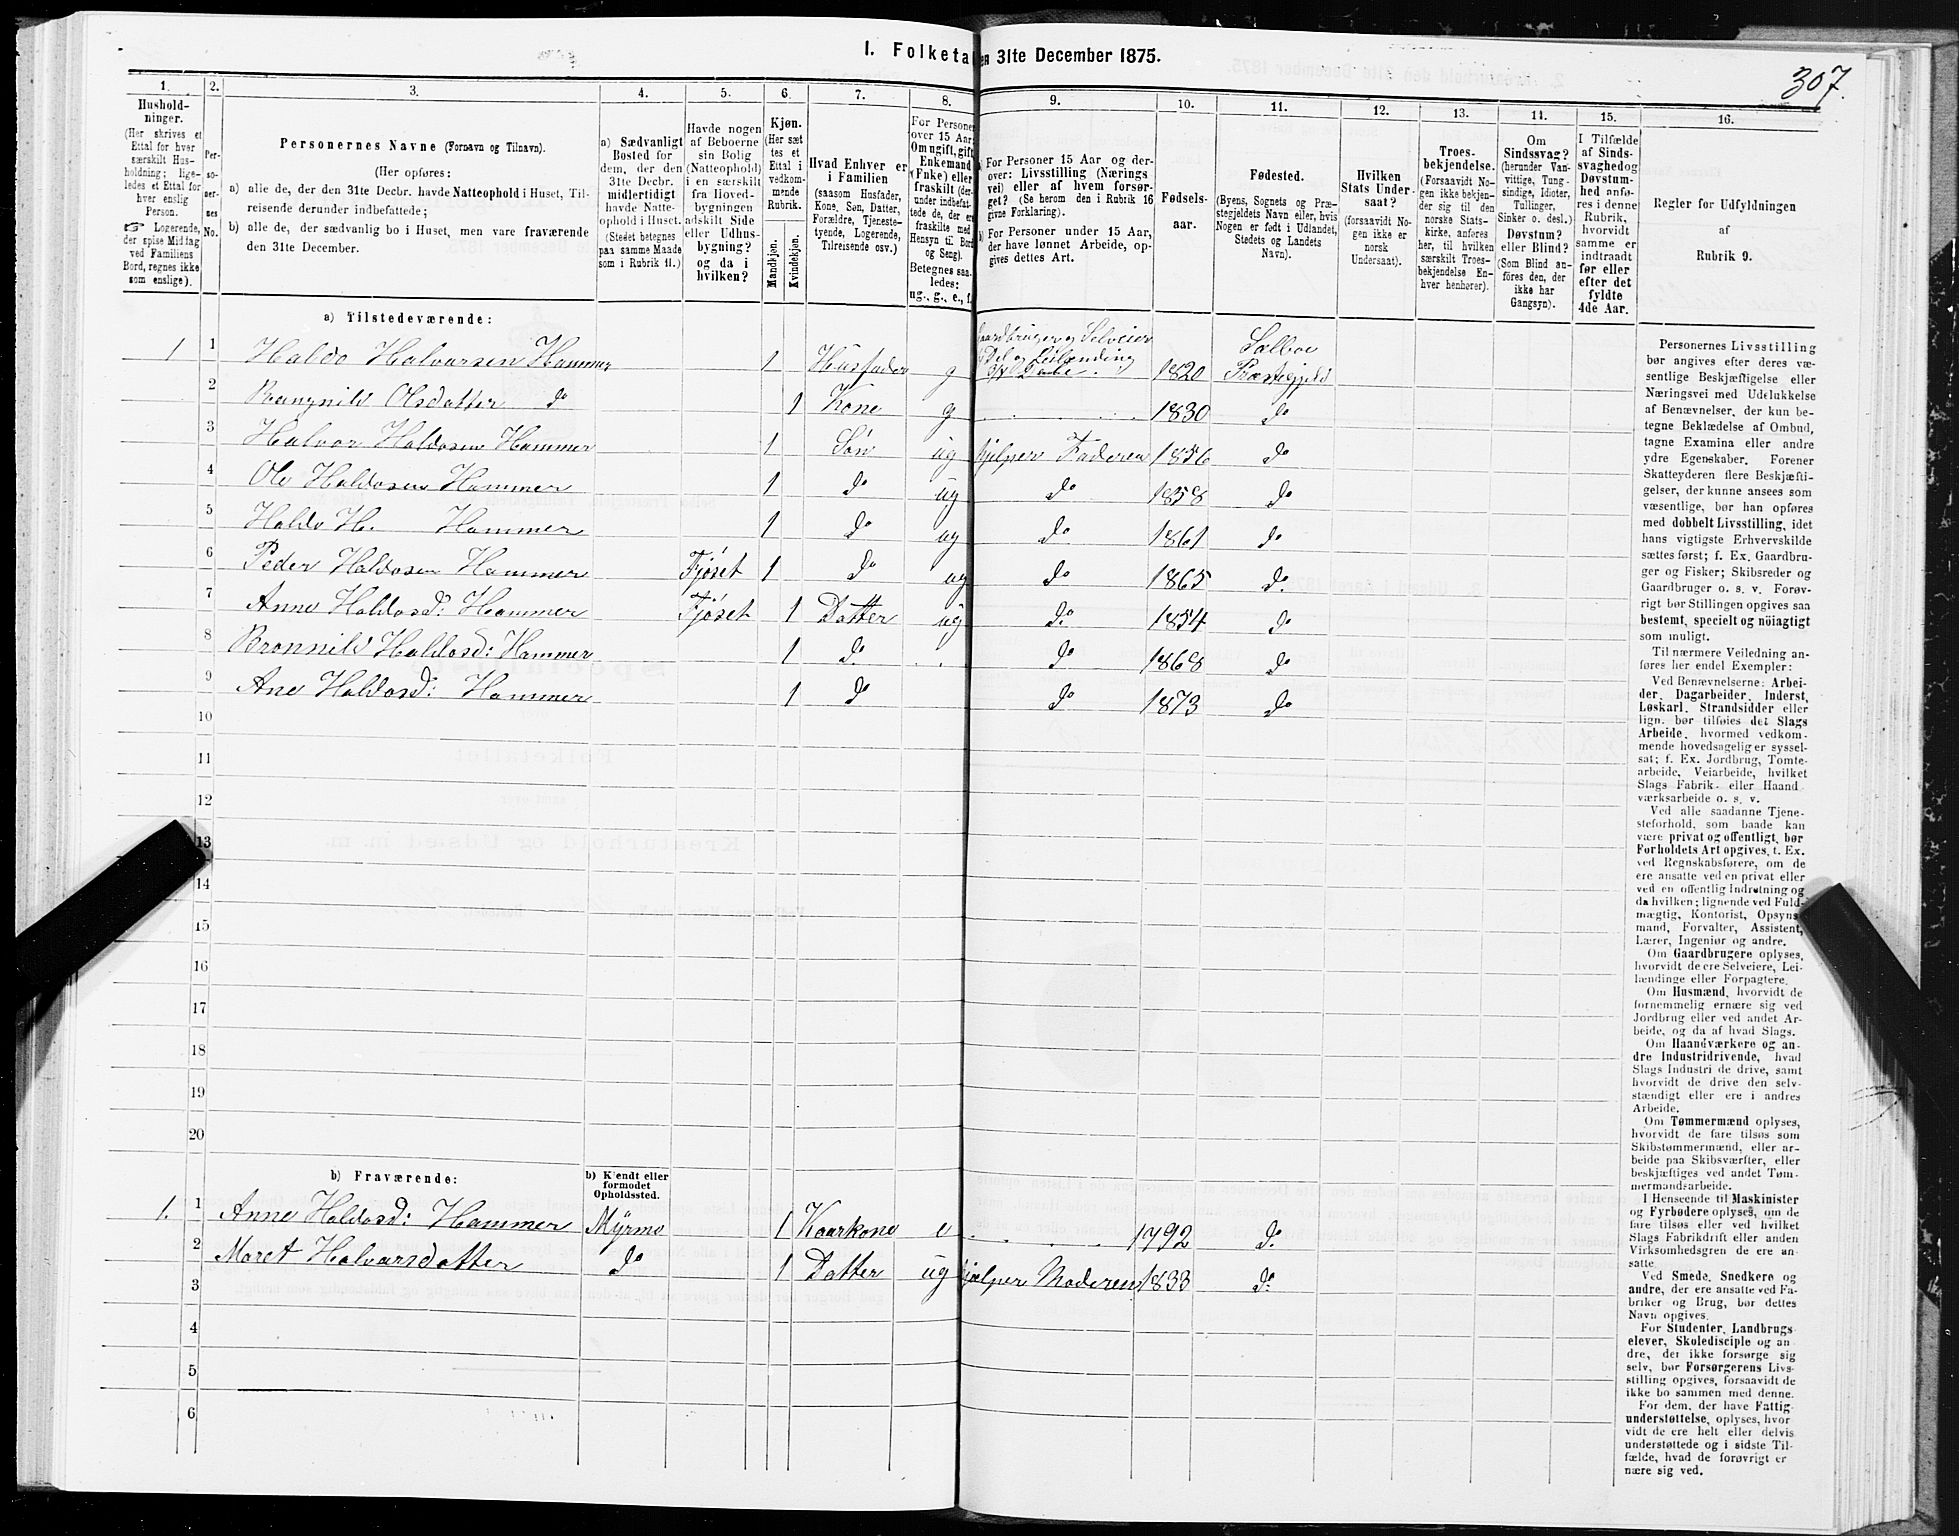 I. Folketal den 31te December 1875.
307.
1.
2.
3.
4.
5.
6.
7.
8.
9.
10.
11.
12.
13.
14.
15.
16.
Hushold-
ninger.
(Her skrives et
Ettal for hver
særskilt Hus-
holdning; lige-
ledes et Ettal for
hver enslig
Person.
☞ Logerende,
der spise Middag
ved Familiens
Bord, regnes ikke
som enslige).
Per-
so-
ner-
nes
No.
Personernes Navne (Fornavn og Tilnavn).
(Her opføres:
a) alle de, der den 31te Decbr. havde Natteophold i Huset, Til-
reisende derunder indbefattede;
b) alle de, der sædvanlig bo i Huset, men vare fraværende
den 31te December.
a) Sædvanligt
Bosted for
dem, der den
31te Decbr.
midlertidigt
havde Natte-
ophold i Huset.
(Stedet betegnes
paa samme Maade
som i Rubrik 11.)
Havde nogen
af Beboerne
sin Bolig
(Natteophold)
i en særskilt
fra Hoved-
bygningen
adskilt Side
eller Udhus-
bygning?
og da i
hvilken?
Kjøn.
(Her sæt
tes et
Ettal i
vedkom-
mende
Rubrik.
Mandkjøn.
Kvindekjøn.
Hvad Enhver er
i Familien
(saasom Husfader,
Kone, Søn, Datter,
Forældre, Tjeneste-
tyende, Logerende,
Tilreisende osv.)
For Personer
over 15 Aar:
Om ugift, gift,
Enkemand
(Enke) eller
fraskilt (der-
under indbefat-
tede de, der ere
fraskilte med
Hensyn til Bord
og Seng).
Betegnes saa-
ledes:
ug., g., e., f.
a) For Personer 15 Aar og der-
over: Livsstilling (Nærings
vei) eller af hvem forsør-
get? (Se herom den i Rubrik 16
givne Forklaring).
b) For Personer under 15 Aar,
der have lønnet Arbeide, op-
gives dettes Art.
Fødsels-
aar.
Fødested.
(Byens, Sognets og Præ-
stegjeldets Navn eller, hvis
Nogen er født i Udlandet,
Stedets og Landets
Navn).
Hvilken
Stats Under-
saat?
(forsaavidt No-
gen ikke er
norsk
Undersaat).
Troes-
bekjendelse.
(Forsaavidt No-
gen ikke bekjen-
der sig til den
norske Stats-
kirke, anføres
her, til hvilken
særskilt Troes-
bekjendelse En-
hver henhører).
Om
Sindssvag?
(herunder Van-
vittige, Tung-
sindige, Idioter,
Tullinger,
Sinker o. desl.)
Døvstum?
eller Blind?
(Som Blind an-
føres den, der
ikke har
Gangsyn).
I Tilfælde
af Sinds-
svaghed og
Døvstum-
hed anfø-
res i denne
Rubrik,
hvorvidt
samme er
indtraadt
før eller
efter det
fyldte
4de Aar.
Regler for Udfyldningen
af
Rubrik 9.
a) Tilstedeværende:
1 1 Haldo Halvarsen Hammer 1 Husfader g Gaardbruger og Selveier Del og Leilænding 1820 Sælboe Præstegjeld
2 Raangnild Olsdatter do 1 Kone g 1830 do
3 Halvor Haldosen Hammer 1 Søn ug hjelper Faderen 1856 do
4 Ole Haldosen Hammer 1 do ug do 1858 do
5 Haldo H. Hammer 1 do ug do 1861 do
6 Peder Haldosen Hammer Fjøset 1 do ug do 1865 do.
7 Anne Haldosd: Hammer Fjöset 1 Datter ug do. 1854 do
8 Bronnild Haldosd: Hammer 1 do. do 1868 do
9 Ane Haldosd: Hammer 1 do do 1873 do
10
11
12
13
14
15
16
17
18
19
20
b) Fraværende:
b) Kjendt eller
formodet
Opholdssted.
1. 1 Anne Haldosd: Hammer Myrmo 1 Kaarkone e 1792 do.
2 Maret Halvarsdatter do 1 Datter ug hjelper Moderen 1833 do.
3
4
5
6
Personernes Livsstilling
bør angives efter deres væ-
sentlige Beskjæftigelse eller
Næringsvei med Udelukkelse
af Benævnelser, der kun be-
tegne Beklædelse af Ombud,
tagne Examina eller andre
ydre Egenskaber. Forener
Skatteyderen flere Beskjæfti-
gelser, der kunne ansees som
væsentlige, bør han opføres
med dobbelt Livsstilling, idet
hans vigtigste Erhvervskilde
sættes først; f. Ex. Gaardbru-
ger og Fisker; Skibsreder og
Gaardbruger o. s. v. Forøv-
rigt bør Stillingen opgives saa
bestemt, specielt og nöiagtigt
som muligt.
Til nærmere Veiledning an-
føres her endel Exempler:
Ved Benævnelserne: Arbei-
der, Dagarbeider, Inderst,
Løskarl, Strandsidder eller
lign. bør tilføies det Slags
Arbeide, hvormed vedkom-
mende hovedsagelig er syssel-
sat; f. Ex. Jordbrug, Tomte-
arbeide, Veiarbeide, hvilket
Slags Fabrik- eller Haand
værksarbeide o. s. v.
Ved alle saadanne Tjene-
steforhold, som baade kan
være privat og offentligt, bør
Forholdets Art opgives, f. Ex.
ved Regnskabsførere, om de
ere ansatte ved en privat eller
ved en offentlig Indretning og
da hvilken; lignende ved Fuld-
mægtig, Kontorist, Opsyns-
mand, Forvalter, Assistent,
Lærer, Ingeniør og andre.
Om Gaardbrugere oplyses,
hvorvidt de ere Selveiere, Lei-
lændinge eller Forpagtere.
Om Husmænd, hvorvidt de
fornemmelig ernære sig ved
Jordbrug eller ved andet Ar-
beide, og da af hvad Slags.
Om Haandværkere og an-
dre Industridrivende, hvad
Slags Industri de drive, samt
hvorvidt de drive den selv-
stændigt eller ere i andres
Arbeide.
Om Tømmermænd oplyses,
hvorvidt de fare tilsøs som
Skibstømmermænd, eller ar-
beide paa Skibsværfter, eller
beskjæftiges ved andet Tøm-
mermandsarbeide.
I Henseende til Maskinister
og Fyrbødere oplyses, om de
fare tilsøs eller ved hvilket
Slags Fabrikdrift eller anden
Virksomhedsgren de ere an-
satte.
Ved Smede, Snedkere og
andre, der ere ansatte ved Fa-
briker og Brug, bør dettes
Navn opgives.
For Studenter, Landbrugs-
elever, Skoledisciple og an-
dre, der ikke forsørge sig
selv, bør Forsørgerens Livs-
stilling opgives, forsaavidt de
ikke bo sammen med denne.
For dem, der have Fattig-
understøttelse, oplyses, hvor
vidt de ere helt eller delvis
understøttede og i sidste Til-
fælde, hvad de forøvrigt er
nære sig ved.